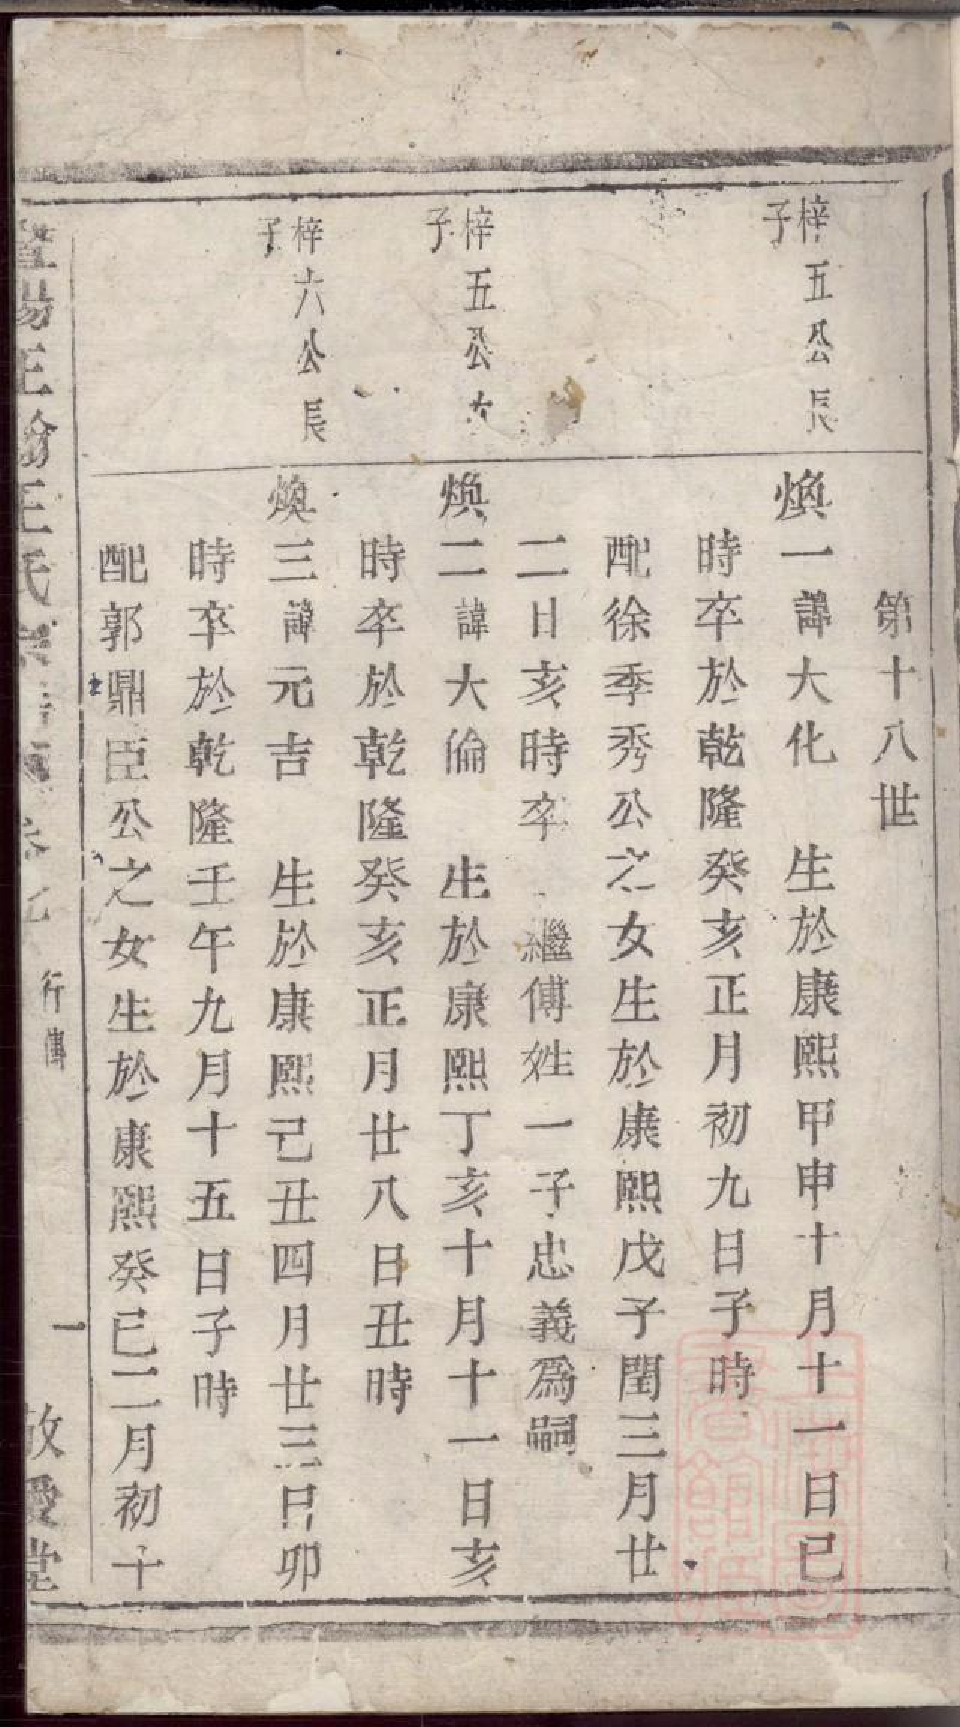 第十八世
梓五公長
子
煥一諱大化　生於康熙甲申十月十一日巳
時卒於乾隆癸亥正月初九日子時
配徐季秀公之女生於康熙戊子閏三月廿
二日亥時卒　繼傅姓一子忠義爲嗣
梓五公
子
煥二諱大倫　生於康熙丁亥十月十一日亥
時卒於乾隆癸亥正月廿八日丑時
梓六公長
子
煥三諱元吉　生於康熙己丑四月廿三日卯
時卒於乾隆壬午九月十五日子時
配郭鼎臣公之女生於康熙癸巳二月初十
王氏
行傳
一
堂